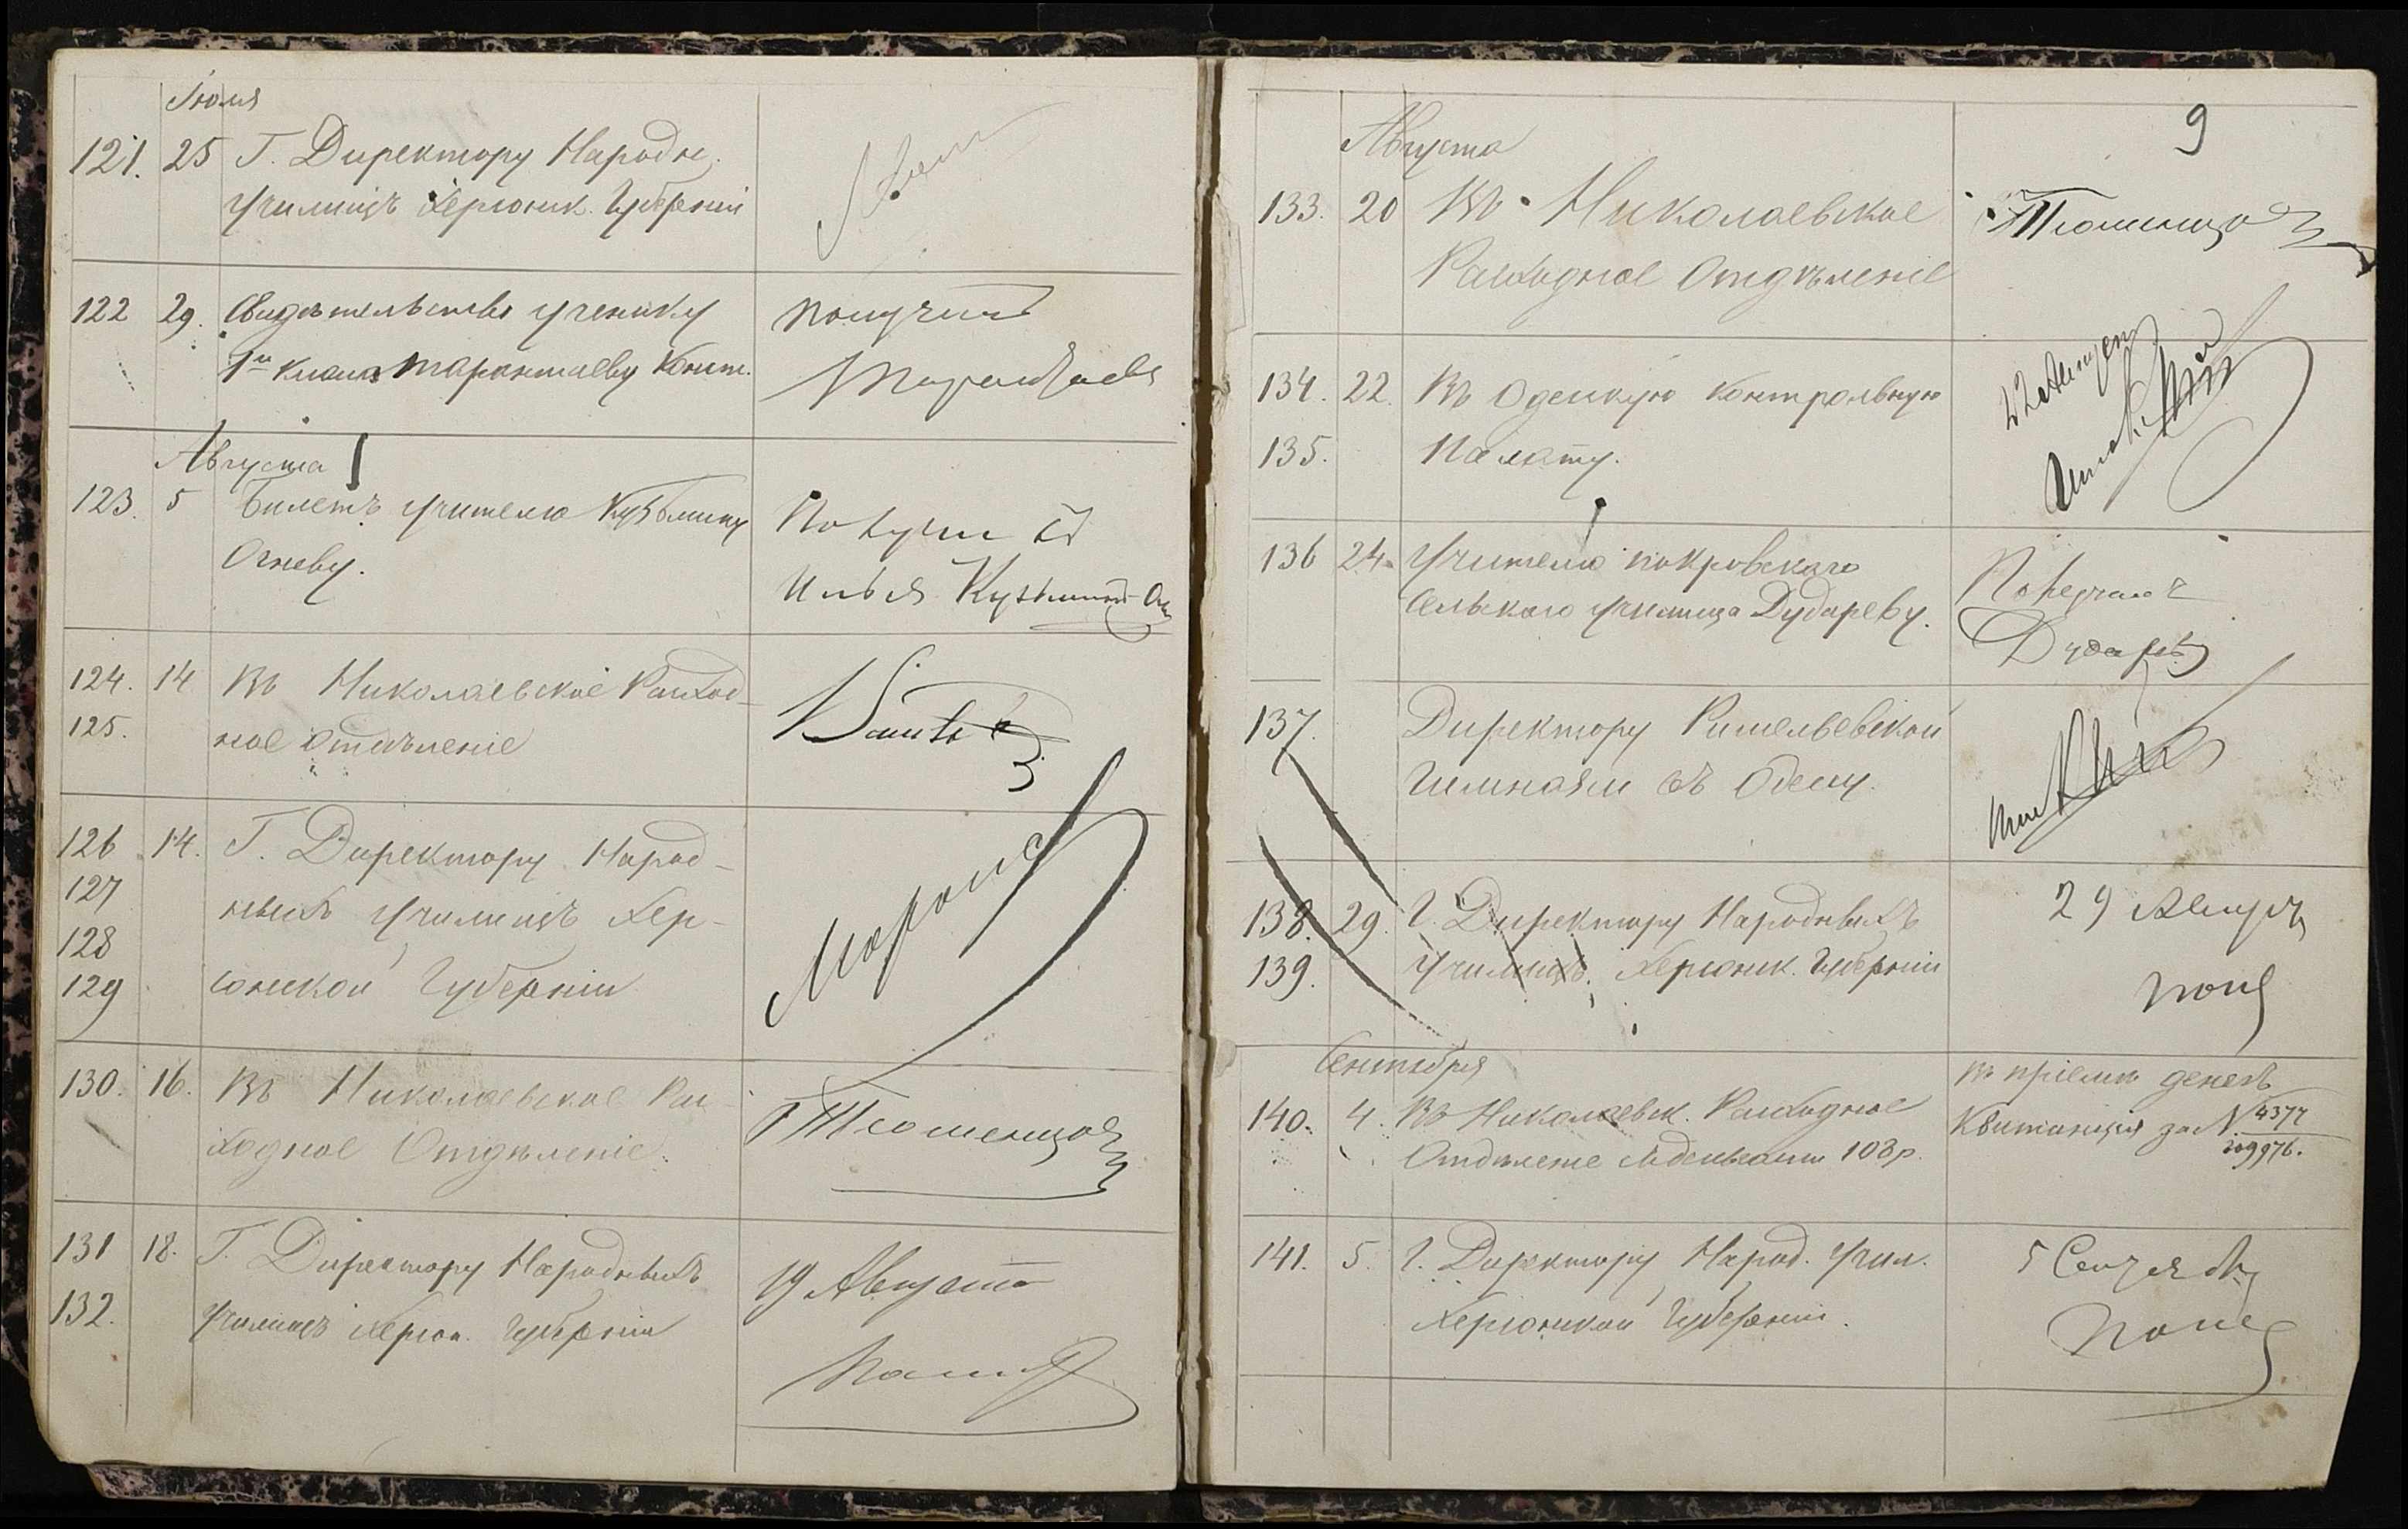 Іюля
121. 25 Г. Директору Народн.
училищъ Херсонск. Губерніи
122 29. Свидѣтельство ученику
1го класса Тарантаеву Конст.
получилъ
Тарантаевъ
Августа
123. 5 Билетъ учителю Кузьмину
Огневу.
Получилъ
Илья Кузьминъ
124. 14 Въ Николаевское Расход-
125. ное отдѣленіе
126 14. Г. Директору Народ-
127 ныхъ училищъ Хер-
128
129 сонской Губерніи
130. 16. Въ Николаевское Рас-
ходное Отдѣленіе.
Тюменцовъ
131 18. Г. Директору Народныхъ
132. училищъ Херсон. Губерніи
19 Августа
9
Августа
133. 20 Въ Николаевское
Расходное Отдѣленіе
Тюменцовъ
134. 22. Въ Одесскую Контрольную
135. Палату.
136 24. Учителю Покровскаго
сельскаго училища Дудареву.
Дударевъ
137. Директору Ришельевской
Гимназіи въ Одессу.
138. 29. Г. Директору Народныхъ
139. училищъ, Херсонск. Губерніи
29 Августа
Сентября
140. 4. Въ Николаевск. Расходное
Отдѣленіе съ деньгами 103 р.
въ пріемѣ денегъ
Квитанція за № 4377
209976.
141. 5. Г. Директору Народ. Учил.
Херсонской Губерніи.
5 Сентября